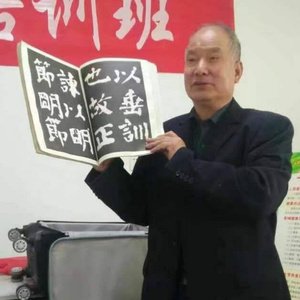 训班
以垂訓
也故正
諫以明
節明節